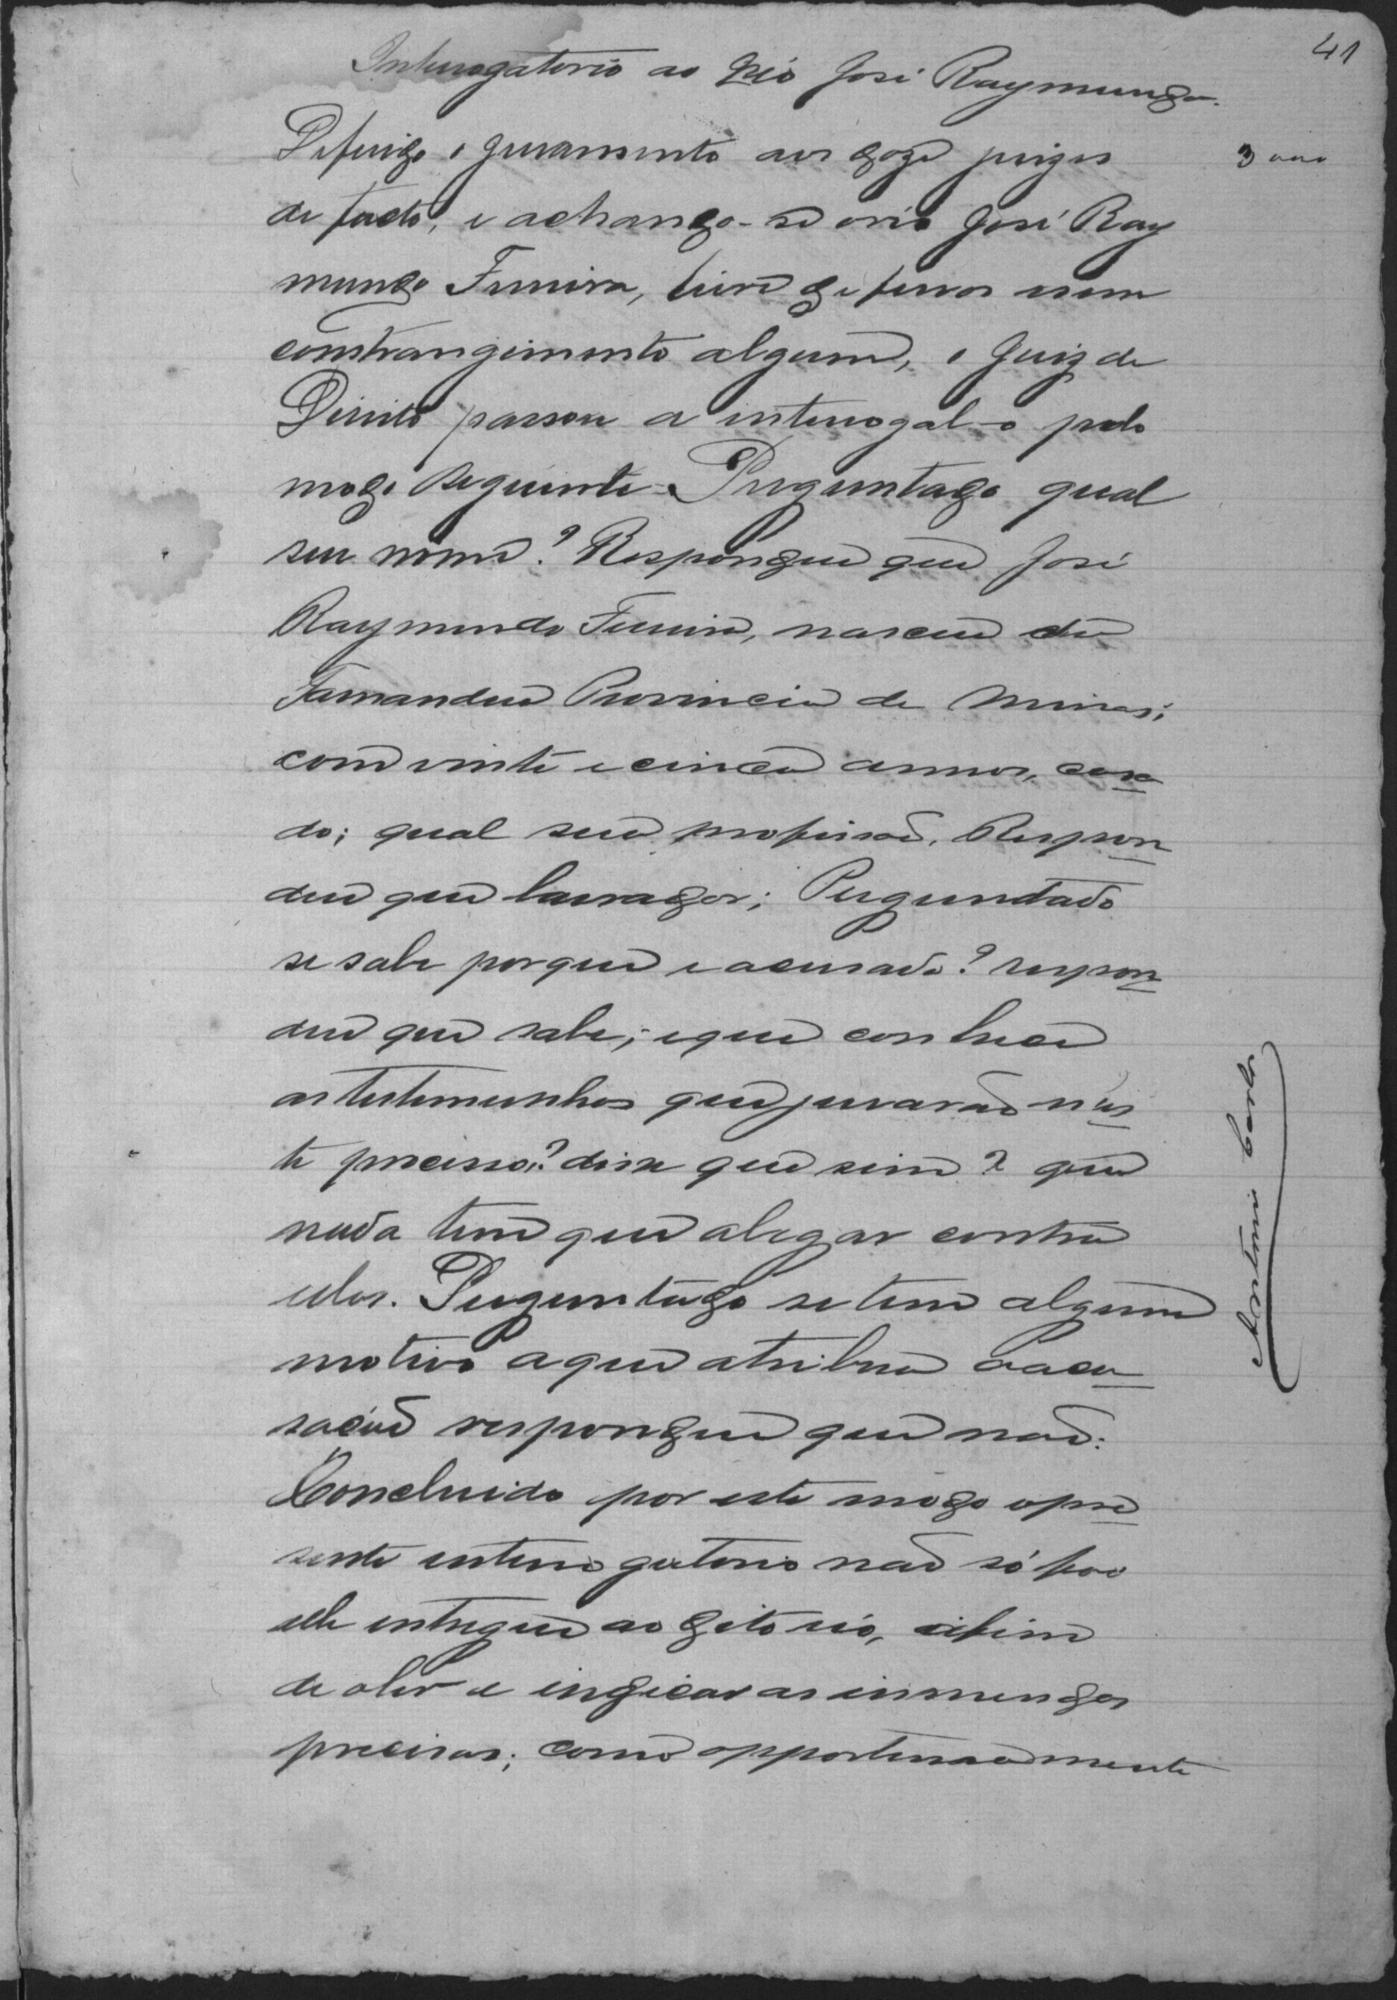 41
Interrogatorio ao Réo José Raymundo.
Deferido o juramento aos doze juizes
3000
de facto, e achando-se o reo José Ray
mundo Ferreira, livre de ferros e sem
constrangimento algum, o Juiz de
Direito passou a interrogal-o pelo
modo seguinte. Perguntado qual
seu nome? Respondeu que José
Raymundo Ferreira, nasceu em
Tamanduá Provincia de Minas;
com vinte e cinco annos, casa
do; qual sua profissão. Respon
deu que lavrador; Perguntado
se sabe porque e acusado? respon
deu que sabe; e que conhece
as testemunhas que jurarão nes
te processo? disse que sim? que
nada tem que alegar contra
ellas. Perguntado se tem algum
motivo a que atribua a acu
sação respondeu que não:
Concluido por este modo o pre
sente interrogatorio não só foi
elle entregue ao dito réo, afim
de o ler e indicar as emmendas
precisas; como opportunamente
Antonio Carlos